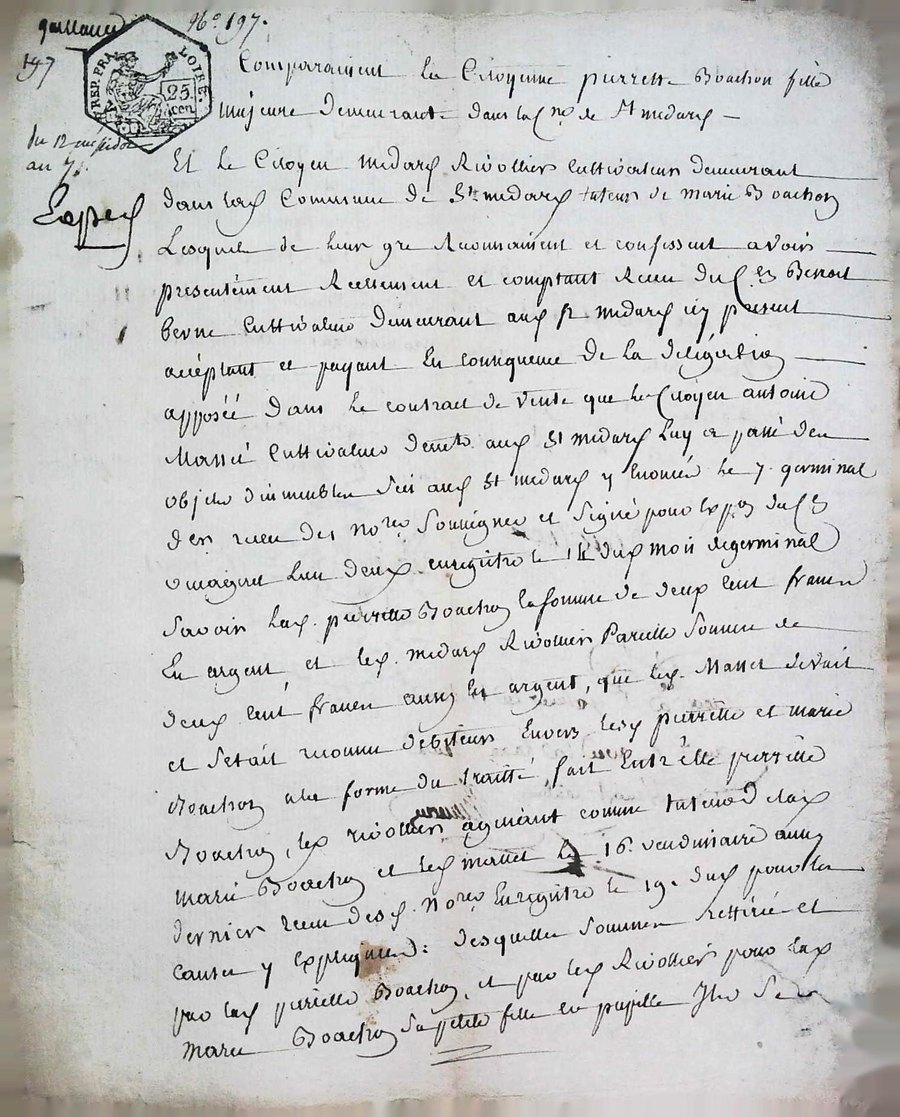 quittance
No. 197.
197
REP. FRA
LOIRE.
25
cen
du 12 messidor
an 7.
Exped
Comparaissent la Citoyenne pierrette Boachon fille
majeure demeurante dans la Cne de St medard
Et le Citoyen medard Rivollier Cultivateur demeurant
dans lad Commune de St medard tuteur de marie Boachon
Lesquels de leur gre Reconnaissent et confessent avoir
presentement Reellement et comptant Receu du Cen Benoit
berne Cultivateur demeurant aud St medard icy present
acéptant et payant En consequence de la délégation
apposée dans le contract de vente que le Citoyen antoine
Massé Cultivateur demt aud St medard luy a passé des
objets d'immeubles sis aud St medard y Enoncés le 7. germinal
der receu des nores Soussignés et Signé pour exp
lun deux enregistré le 14 dud mois de germinal
Savoir lad. pierrette Boachon la somme de deux Cent francs
En argent et led. medard Rivollier Pareille Somme de
deux Cent francs aussy En argent, que led. Masset devait
et Setait reconnu débiteur Envers lesd pierrette et marie
Boachon a la forme du traitté fait Entr'elle pierrette
Boachon, led rivollier agissant comme tuteur de lad
marie Boachon et led masset le 16. vendemiaire année
dernier receu desd. Nores Enregistré le 19. dud pour les
causes y Expliquées: desquelles Sommes rettirées et
par lad pierrette Boachon, et par led Rivollier pour lad
marie Boachon Sa petite fille en pupille Ils Se